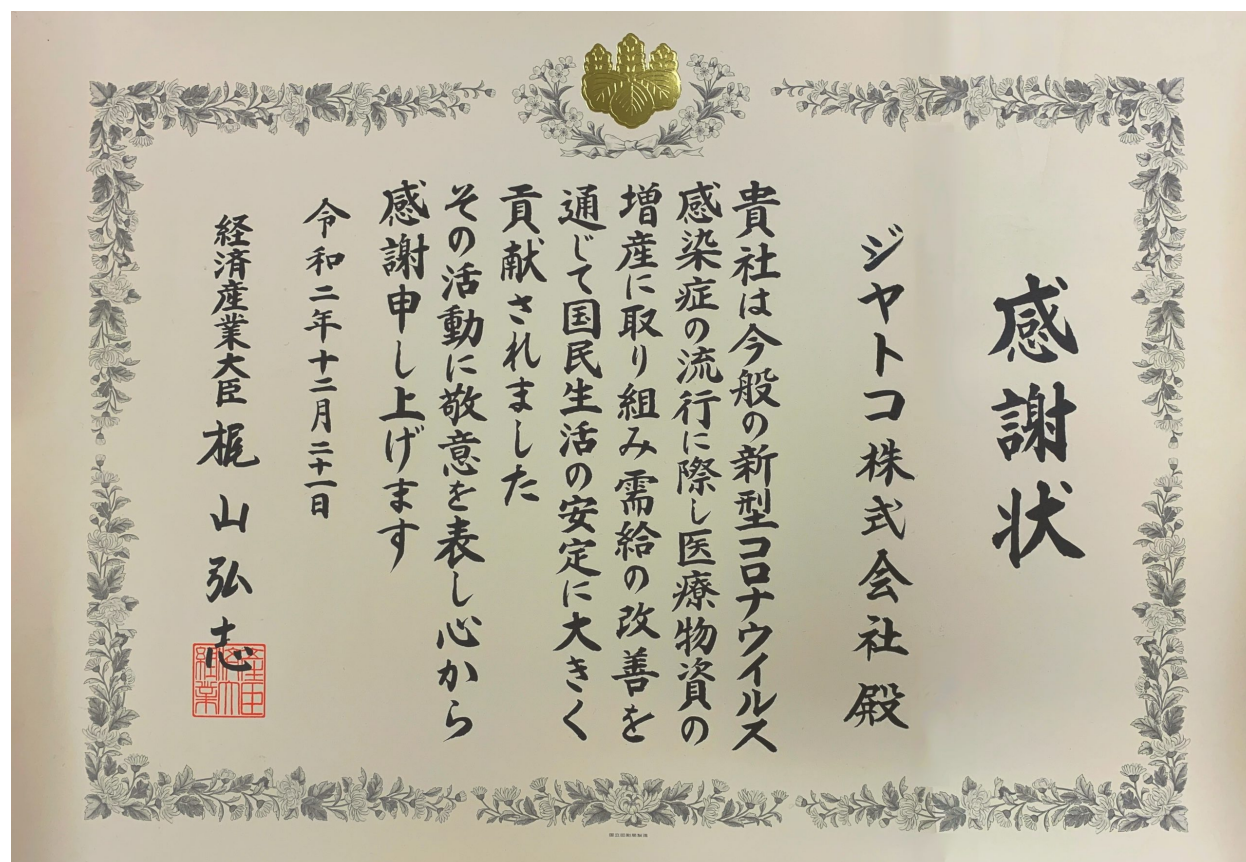 感謝状
ジヤトコ株式会社殿
貴社は今般の新型コロナウイルス
感染症の流行に際し医療物資の
増産に取り組み需給の改善を
通じて国民生活の安定に大きく
貢献されました
その活動に敬意を表し心から
感謝申し上げます
令和二年十二月二十一日
経済産業大臣 梶山弘志